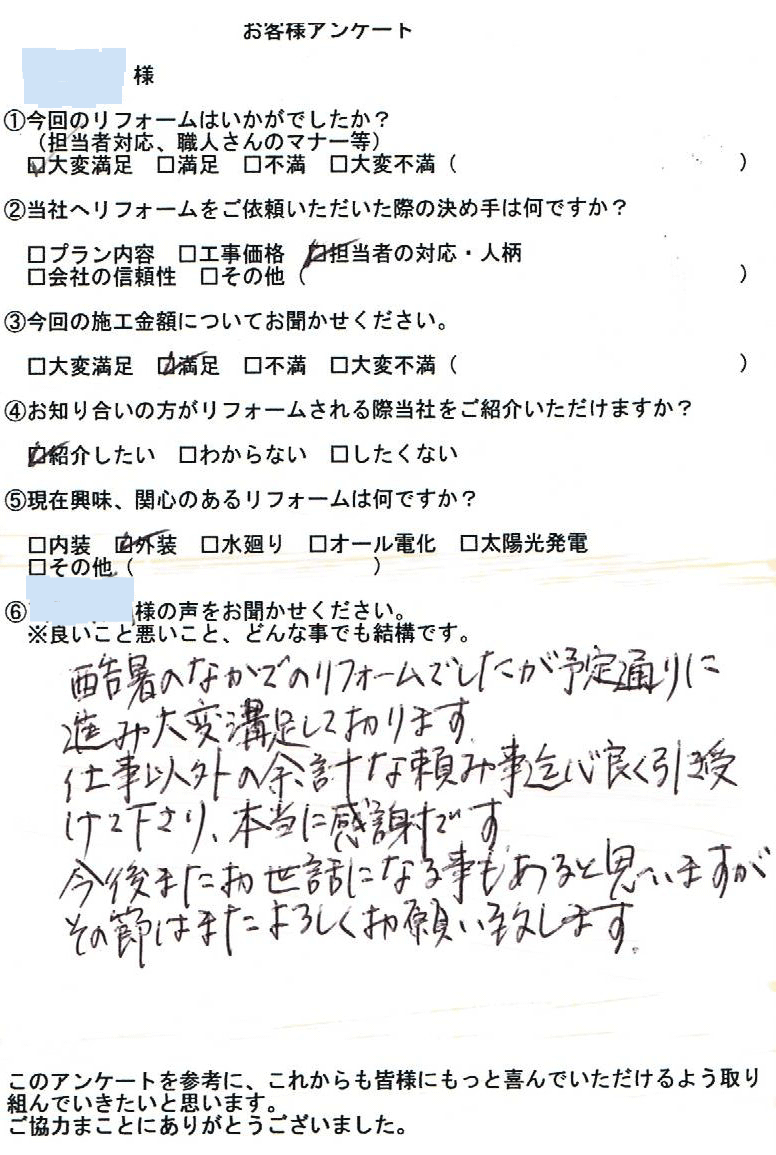 お客様アンケート
様
①今回のリフォームはいかがでしたか？
（担当者対応、職人さんのマナー等）
☑大変満足 □満足 □不満 □大変不満（ ）
②当社へリフォームをご依頼いただいた際の決め手は何ですか？
□プラン内容 □工事価格 ☑担当者の対応・人柄
□会社の信頼性 □その他（ ）
③今回の施工金額についてお聞かせください。
□大変満足 ☑満足 □不満 □大変不満（ ）
④お知り合いの方がリフォームされる際当社をご紹介いただけますか？
☑紹介したい □わからない □したくない
⑤現在興味、関心のあるリフォームは何ですか？
□内装 ☑外装 □水廻り □オール電化 □太陽光発電
□その他（ ）
⑥ 様の声をお聞かせください。
※良いこと悪いこと、どんな事でも結構です。
酷暑のなかでのリフォームでしたが予定通りに
進み大変満足しております
仕事以外の余計な頼み事迄心良く引き受
けて下さり、本当に感謝です
今後またお世話になる事もあると思いますが
その節はまたよろしくお願い致します。
このアンケートを参考に、これからも皆様にもっと喜んでいただけるよう取り
組んでいきたいと思います。
ご協力まことにありがとうございました。